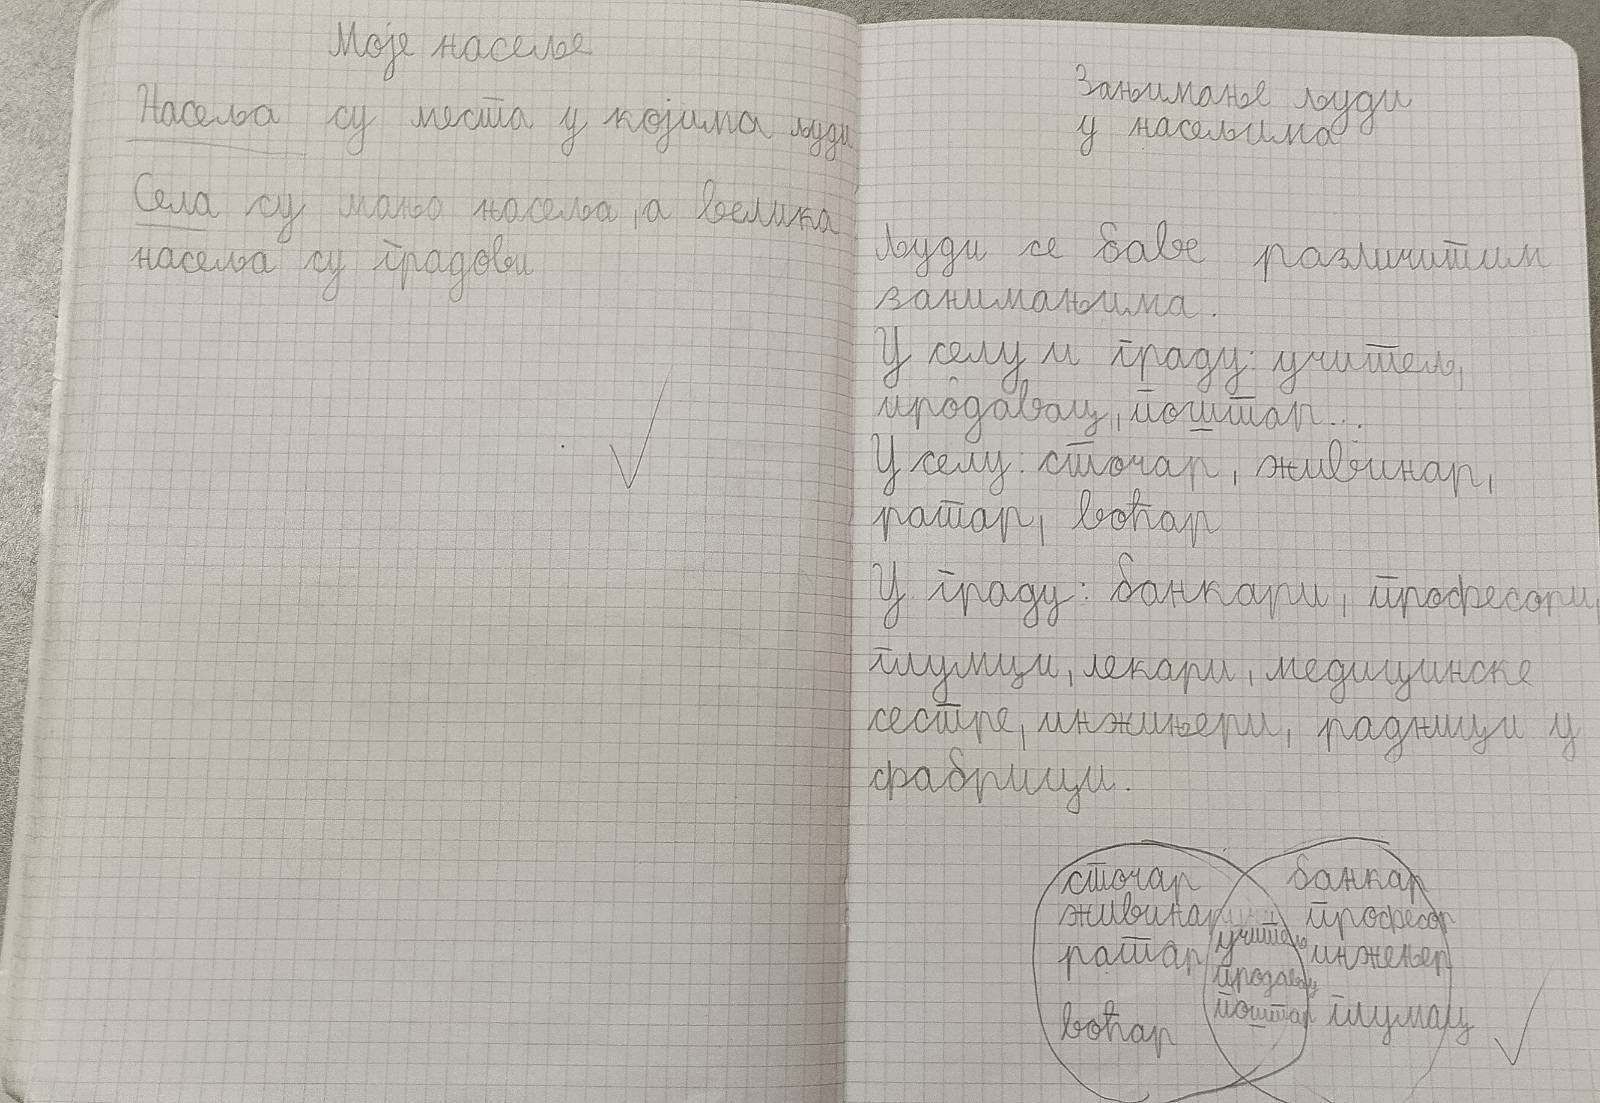 Моје насеље
Насеља су места у којима људи
Села су мања насеља, а велика
насеља су градови
Зањимање људи
у насељима
људи се баве различитим
занимањима.
У селу и граду: учитељ,
продавац, поштар...
У селу: сточар, живинар,
ратар, воћар
У граду: банкари, професори,
глумци, лекари, медицинске
сестре, инжињери, радници у
фабрици.
сточар
живинар
ратар
воћар
учитељ
продавац
поштар
банкар
професор
инжењер
глумац